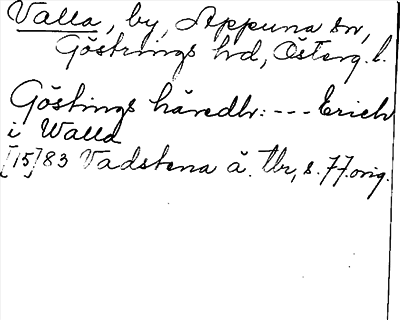 Valla, by, Appuna sn,
Göstrings hd, Österg. l.
Göstings häredh: --- Erich
i Walla
[15]83 Vadstena ä. tbr, s. 77. orig.